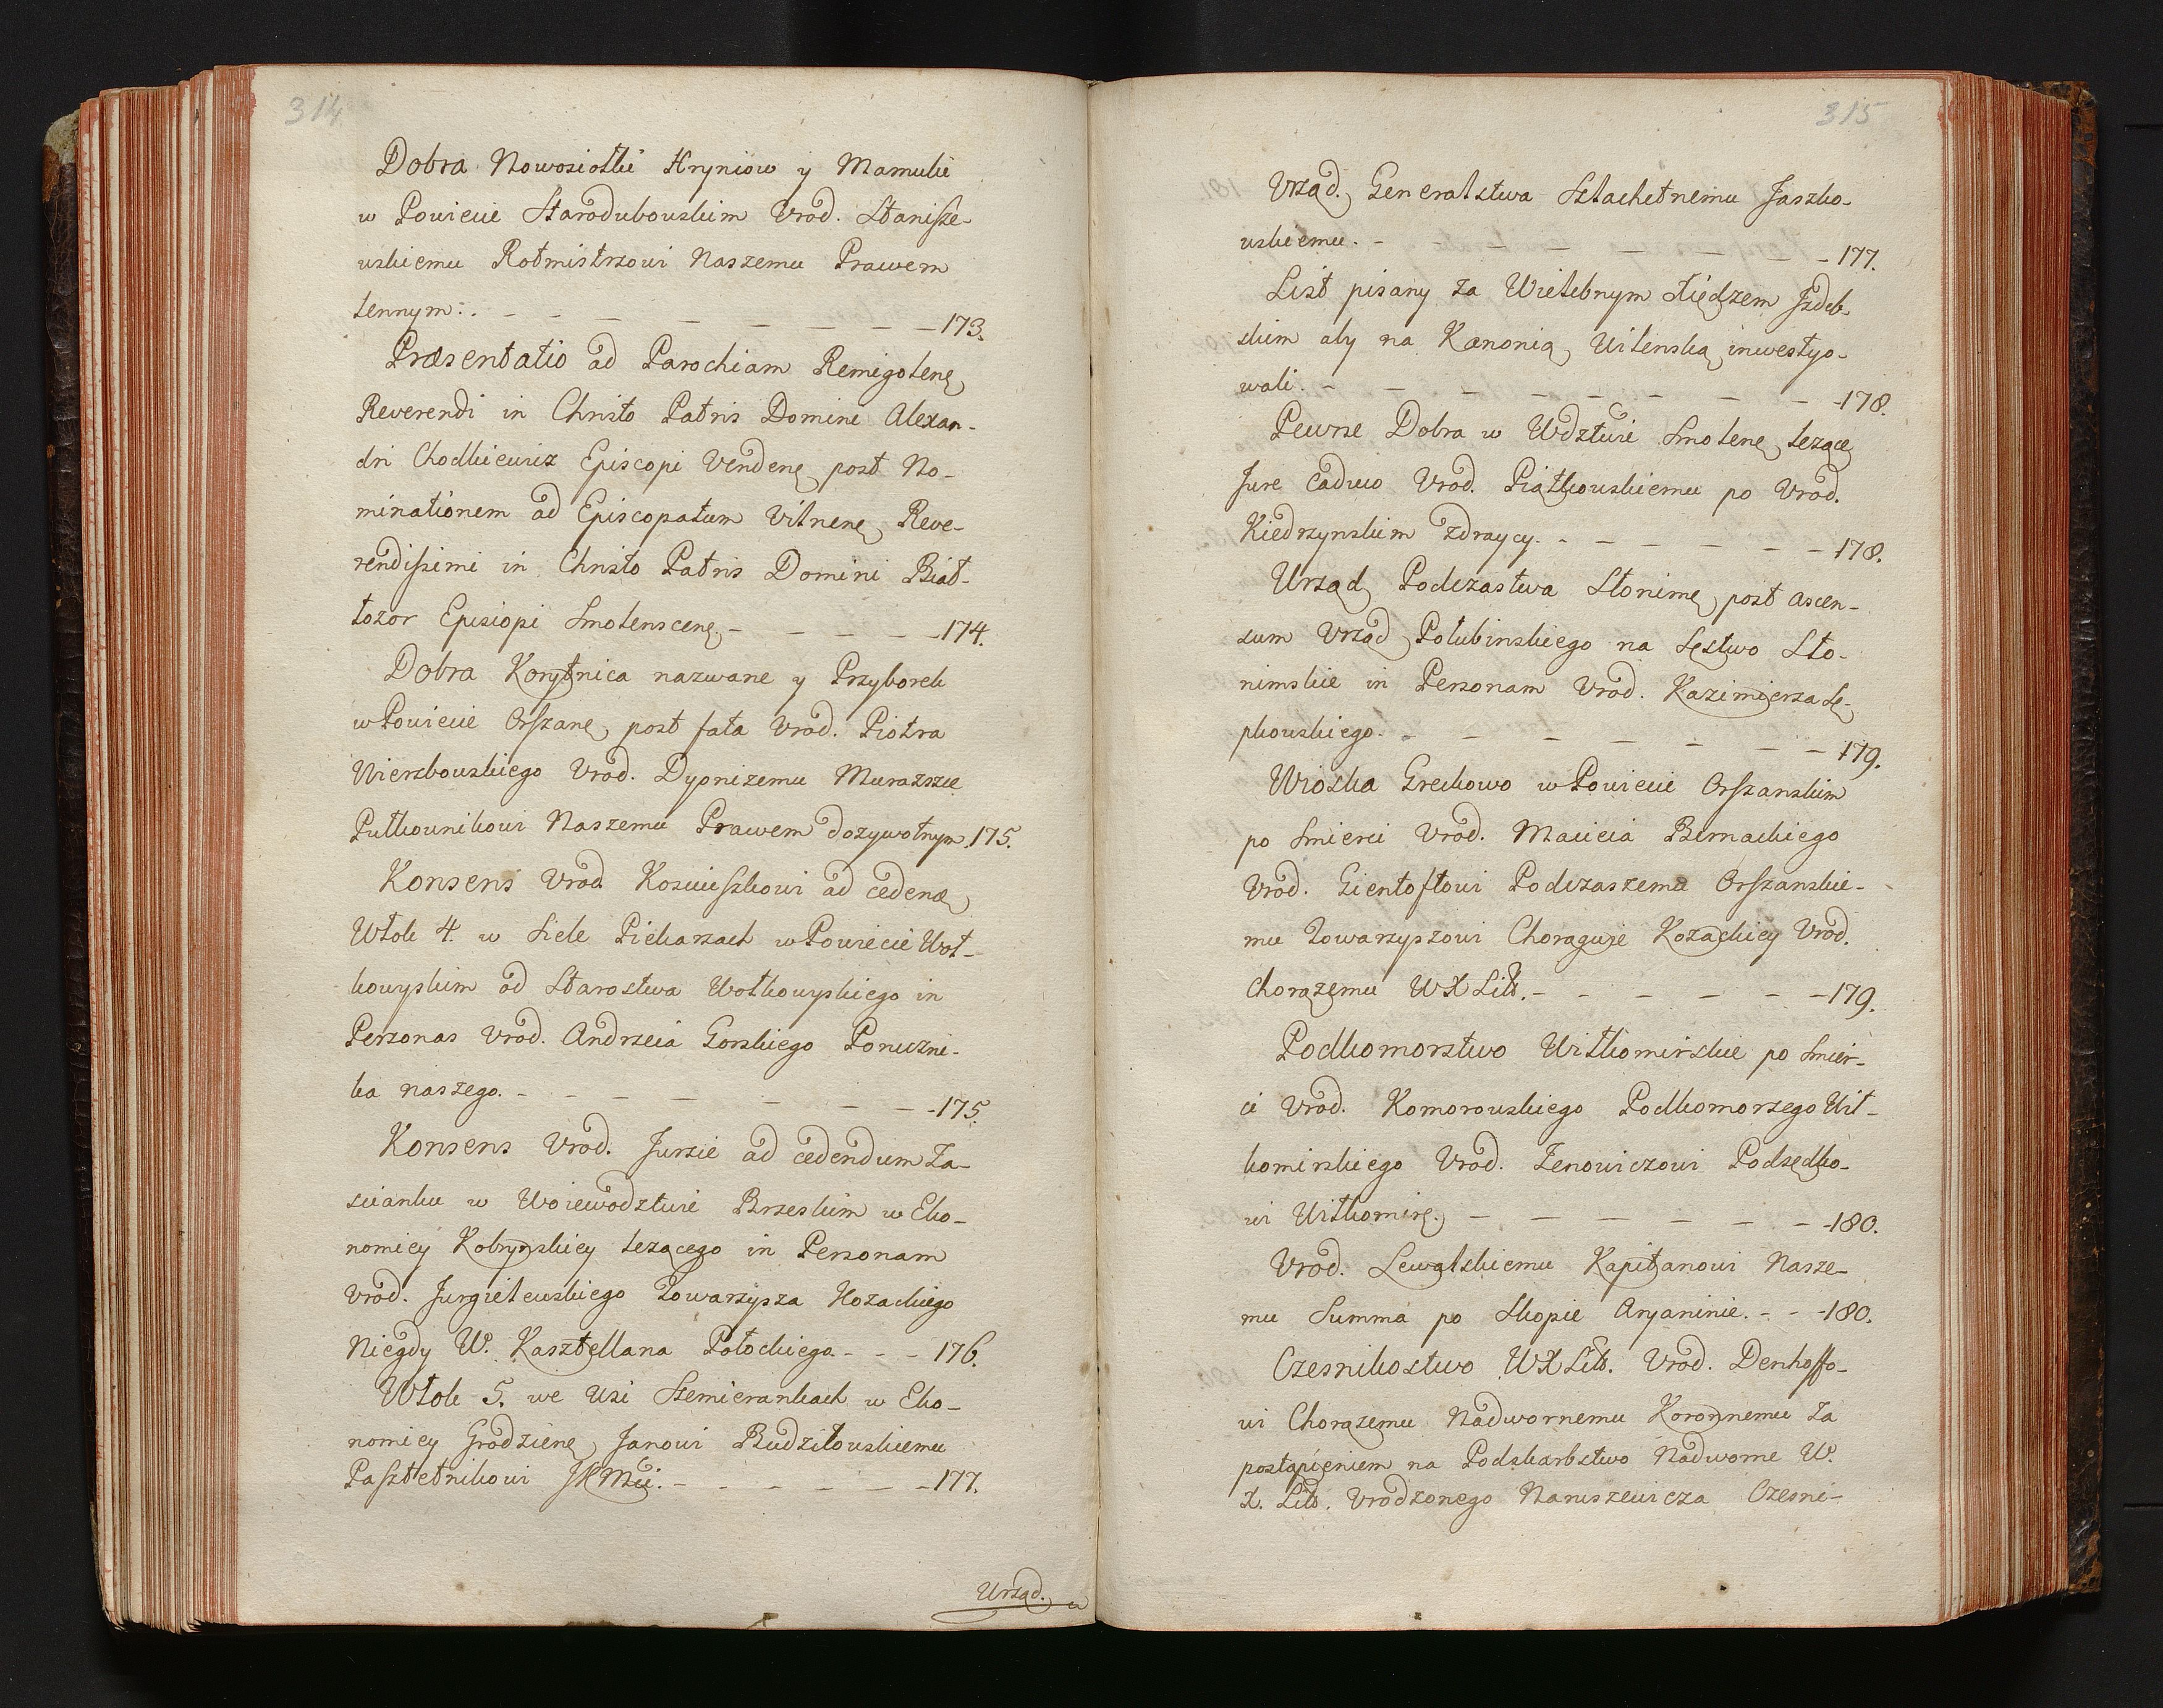 314.
Dobra Nowosiołki Hryniow y Mamulki
w Powiecie Starodubowskim Vrod. Stanisze-
wskiemu Rotmistrzowi Naszemu Prawem
lennym: . - - - - - - - 173.
Præsentatio ad Parochiam Remigolenę
Reverendi in Christo Patris Domini Alexan-
dri Chodkiewicz Episcopi Vendenę post No-
minationem ad Episcopatum Vilnenę Reve-
rendissimi in Christo Patris Domini Biał-
łozor Episiopi Smolenscenę. - - - - 174.
Dobra Korytnica nazwane y Przyborek
w Powiecie Orszanę post fata Vrod. Piotra
Wierzbowskiego Vrod. Dyonizemu Murazsze
Pułkownikowi Naszemu Prawem dozywotnym. 175.
Konsens Vrod. Kosciuszkowi ad cedenđ
Włok 4. w Siele Piekarzach w Powiecie Woł-
kowyskim od Starostwa Wołkowyskiego in
Perzonas Vrod. Andrzeia Gorskiego Porucżni-
ka naszego. - - - - - - - 175.
Konsens Vrod. Jurzie ad cedendum Za-
scianku w Woiewodztwie Brzeskim w Eko-
nomiey Kobrynskiey lezącego in Personam
Vrod. Jurgielewskiego Towarzysza Kozackiego
Niegdy W. Kasztellana Połockiego. - - - 176.
Włok 5. we Wsi Szemierankach w Eko-
nomiey Grodzienę Janowi Budziłowskiemu
Pasztetnikowi JKMci. - - - - - - 177.
Urząd.
315
Vrząd. Generalstwa Szlachetnemu Jaszko-
wskiemu. - - - - - - - 177.
List pisany za Wielebnym Xiędzem Jzdeb-
skim aby na Kanonią Wilenską inwestyo-
wali. - - - - - - - 178.
Pewne Dobra w Wdztwie Smolenę lezące
Jure caduco Vrod. Piątkowskiemu po Vrod.
Kiedrzynskim Zdraycy. - - - - - - 178.
Urząd Podczastwa Słonimę post ascen-
sum Vrząd Połubinskiego na Sęstwo Sło-
nimskie in Personam Vrod. Kazimierza Sę-
pkowskiego. - - - - - - - 179.
Wioska Grekowo w Powiecie Orszanskim
po Smierci Vrod. Macieia Bernackiego
Vrod. Gientoftowi Podczaszemu Orszanskie-
mu Towarzyszowi Chorągwie Kozackiey Vrod.
Chorązemu WXLitt. - - - - - - 179.
Podkomorstwo Wiłkomirskie po Smier-
ci Vrod. Komorowskiego Podkomorzego Wił-
komirskiego Vrod. Zenowiczowi Podsędko-
wi Wiłkomirę. - - - - - - - 180.
Vrod. Lewalskiemu Kapitanowi Nasze-
mu Summa po Skopie Aryaninie. - - - 180.
Czesnikostwo WXLitt. Vrod. Denhoffo-
wi Chorązemu Nadwornemu Koronnemu za
postąpieniem na Podskarbstwo Nadworne W.
X. Litt. Vrodzonego Naruszewicza Czesni-